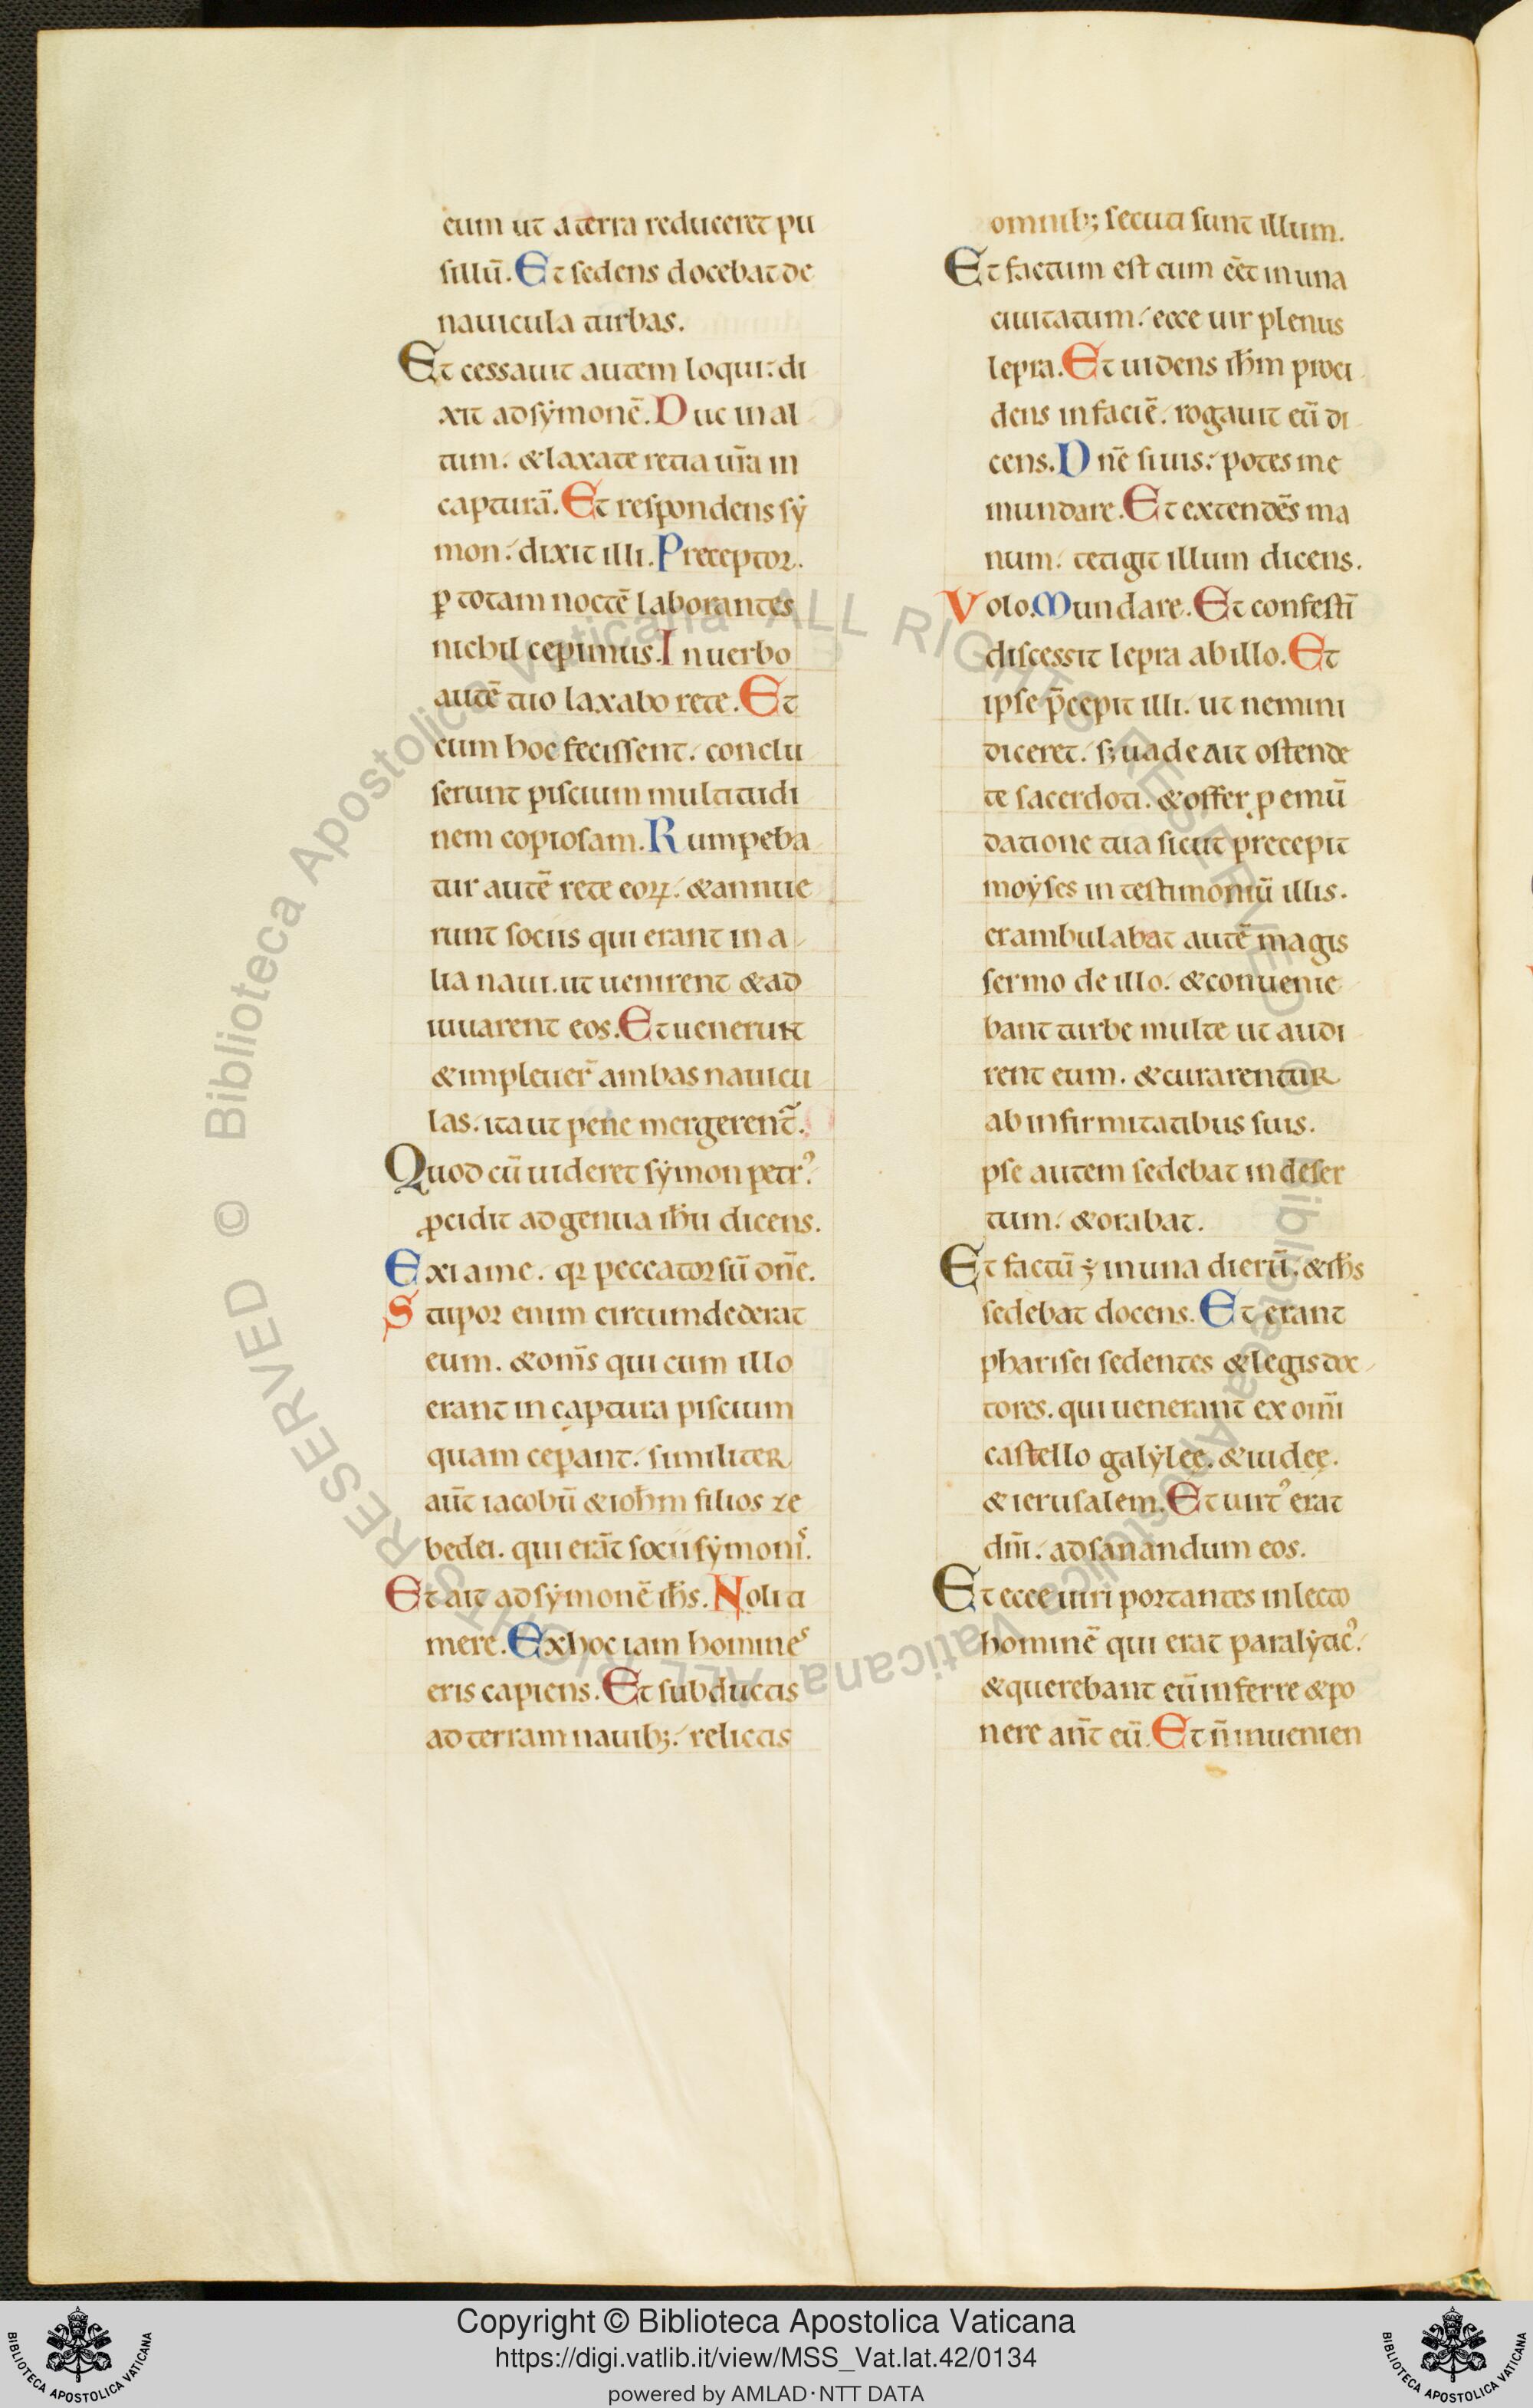 eum ut a terra reduceret pu
sillū. Et sedens docebat de
nauicula turbas.
Et cessauit autem loqui: di
xit ad sẏmonē. Duc in al
tum. & laxate retia ur̄a in
capturā. Et respondens sẏ
mon: dixit illi. Preceptor.
ꝑ totam noctē laborantes
nichil cepimus. In uerbo
autē tuo laxabo rete. Et
cum hoc fecissent. conclu
serunt piscium multitudi
nem copiosam. Rumpeba
tur autē rete eoꝝ. & annue
runt sociis qui erant in a
lia naui. ut uenirent & ad
iuuarent eos. Et uenerunt
& impleuer̄ ambas nauicu
las. ita ut pene mergerent̄.
Quod cū uideret sẏmon petrꝰ.
ꝓcidit ad genua ih̄u dicens.
Exi a me. qꝛ peccator sū dn̄e.
Stupor enim circumdederat
eum. & om̄s qui cum illo
erant in captura piscium
quam ceperant. similiter
aūt iacobū & ioh̄m filios ze
bedei. qui erāt socii sẏmonis.
Et ait ad sẏmonē ih̄s. Noli ti
mere. Ex hoc iam homines
eris capiens. Et subductis
ad terram nauibꝫ. relictis
omnibꝫ secuti sunt illum.
Et factum est cum eēt in una
ciuitatum. ecce uir plenus
lepra. Et uidens ih̄m proci
dens in faciē. rogauit eū di
cens. Dn̄e si uis. potes me
mundare. Et extendēs ma
num. tetigit illum dicens.
Volo. Mundare. Et confestī
discessit lepra ab illo. Et
ipse p̄cepit illi. ut nemini
diceret. sꝫ uade ait ostende
te sacerdoti. & offer ꝓ emū
datione tua sicut precepit
moẏses in testimoniū illis.
erambulabat autē magis
sermo de illo. & conuenie
bant turbe multe ut audi
rent eum. & curarentur
ab infirmitatibus suis.
pse autem sedebat in deser
tum. & orabat.
Et factū ÷ in una dierū. & ih̄s
sedebat docens. Et erant
pharisei sedentes & legis doc
tores. qui uenerant ex om̄i
castello galẏlee. & iudee.
& ierusalem. Et uirtꝰ erat
dn̄i. ad sanandum eos.
Et ecce uiri portantes in lecto
hominē qui erat paralẏticꝰ.
& querebant eū inferre & po
nere an̄t eū. Et n̄ inuenien
Copyright © Biblioteca Apostolica Vaticana
https://digi.vatlib.it/view/MSS_Vat.lat.42/0134
powered by AMLAD·NTT DATA
© Biblioteca Apostolica Vaticana ALL RIGHTS RESERVED
© Biblioteca Apostolica Vaticana ALL RIGHTS RESERVED
BIBLIOTECA APOSTOLICA VATICANA
BIBLIOTECA APOSTOLICA VATICANA